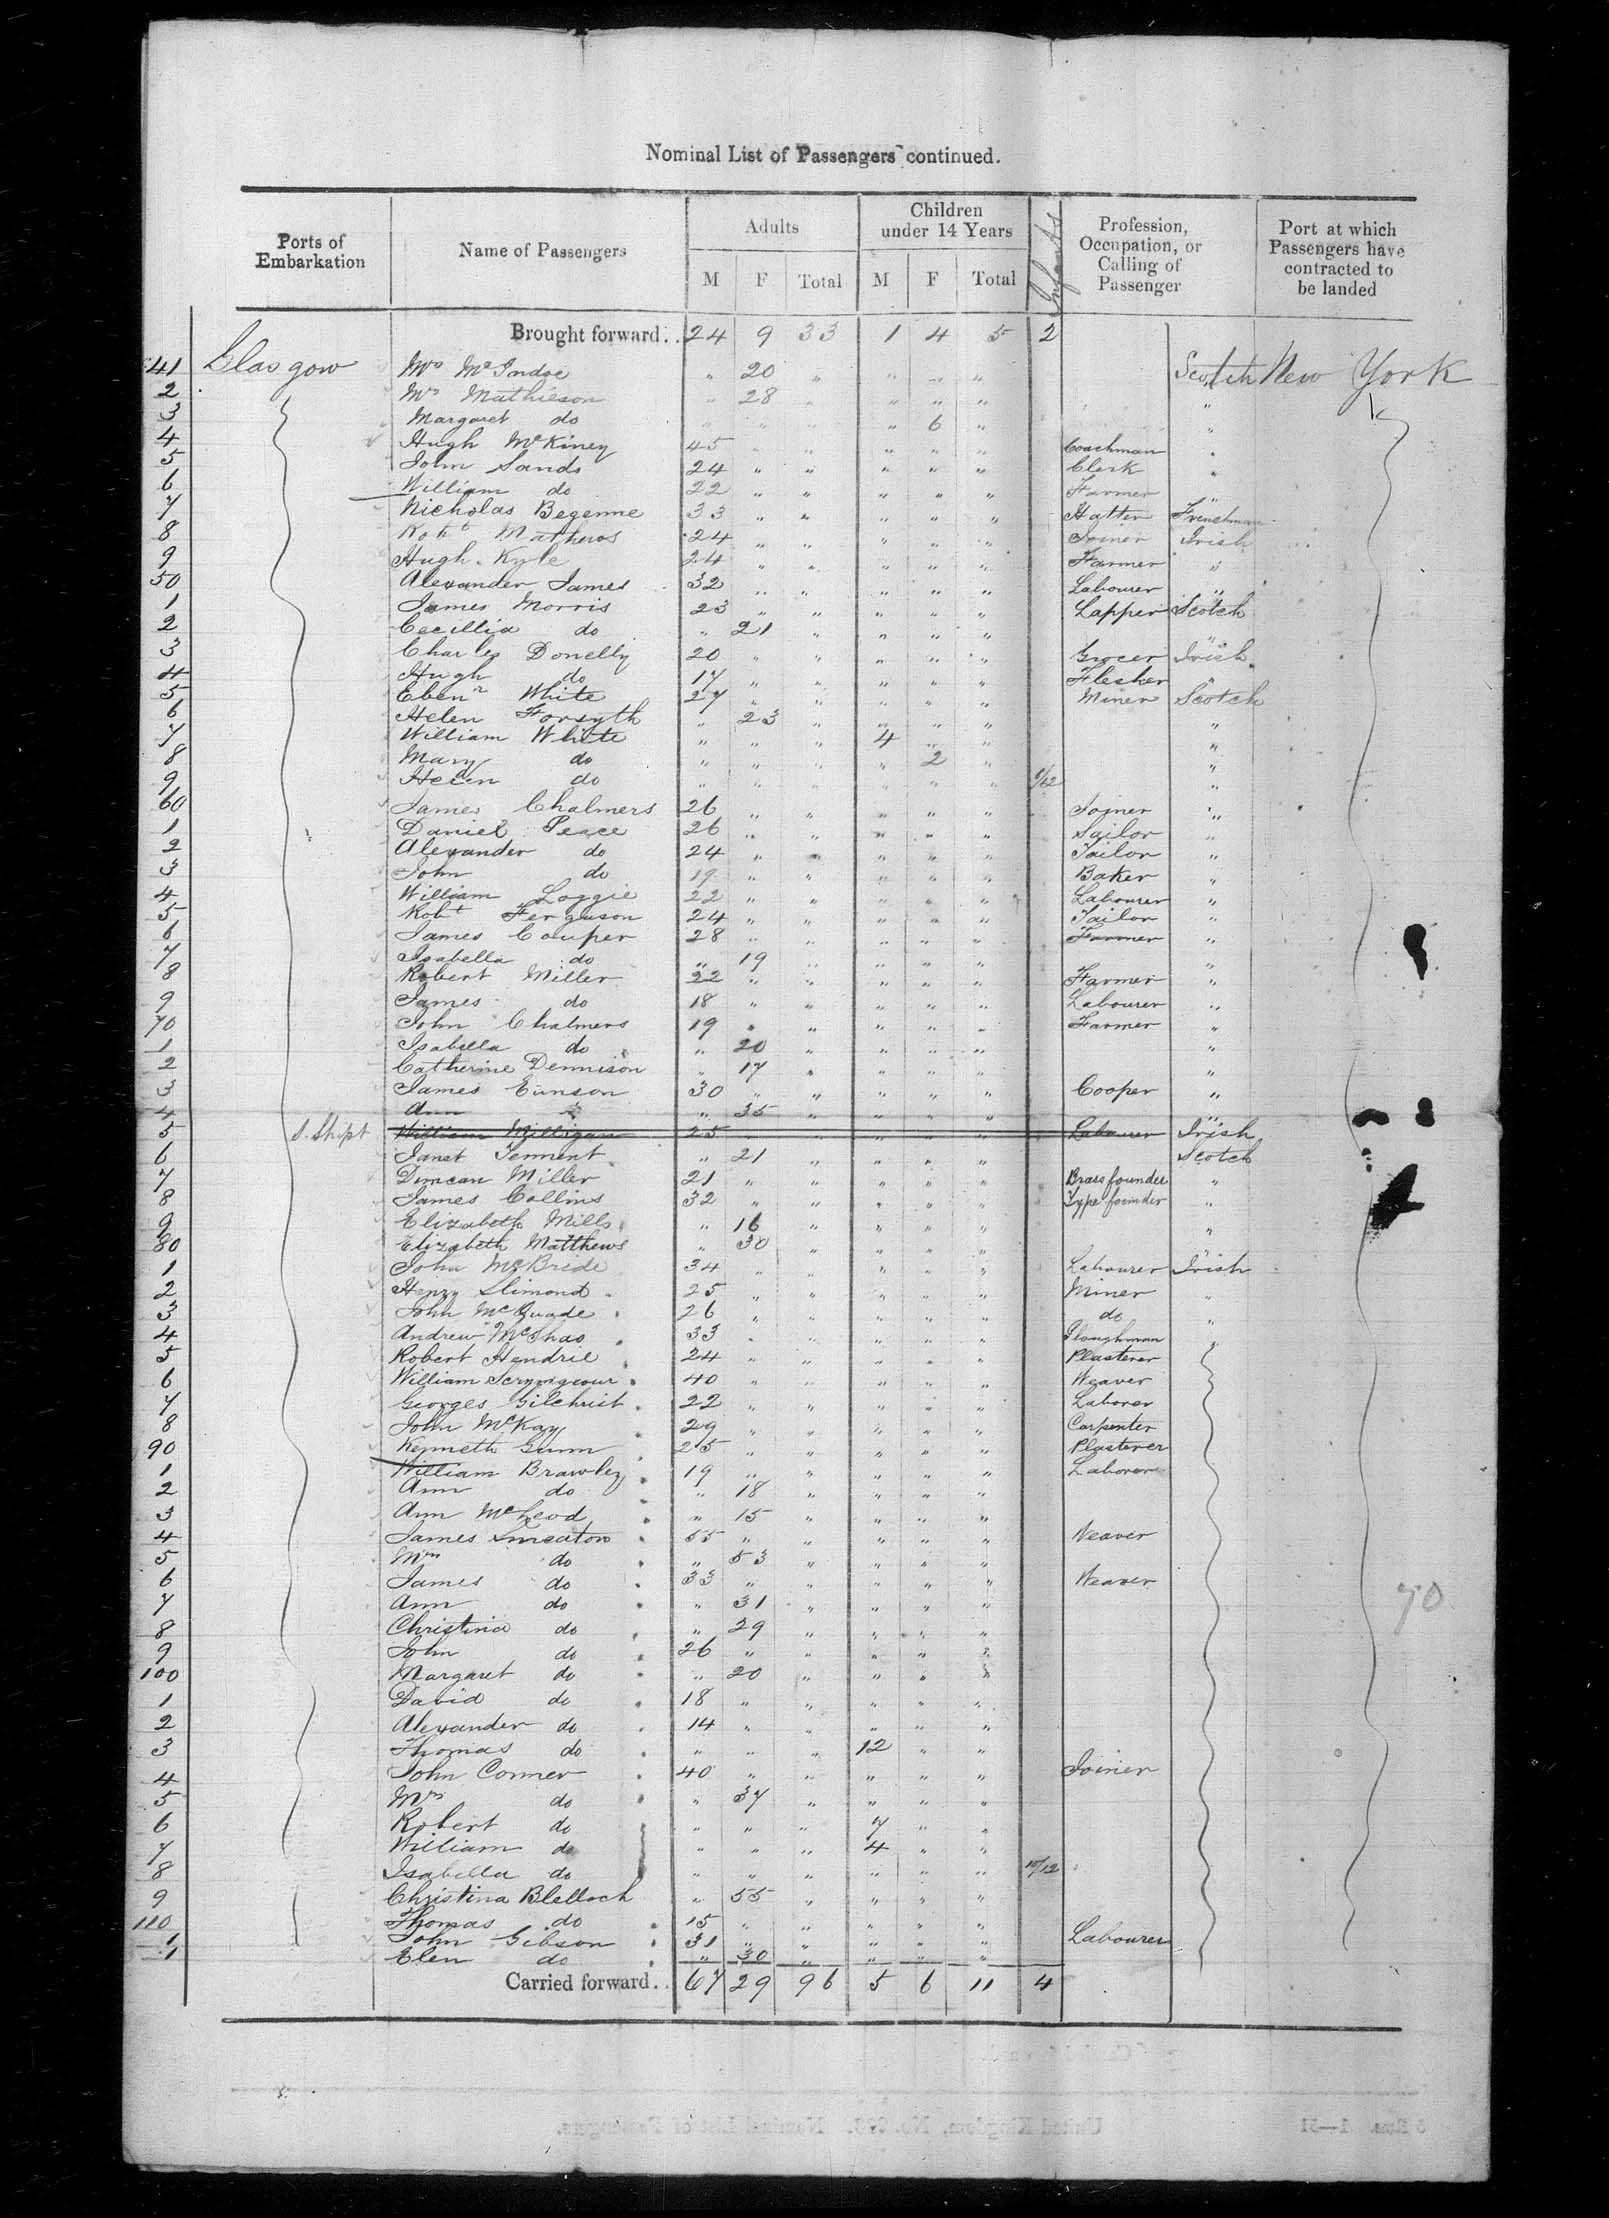 Nominal List of Passengers continued.
Ports of Embarkation | Name of Passengers | Adults M F Total | Children under 14 Years M F Total | Infants | Profession, Occupation, or Calling of Passenger | Port at which Passengers have contracted to be landed
Brought forward.. 24 9 33 1 4 5 2
41 Glasgow Mrs McIndoe " 20 " " " " Scotch New York
2 Mrs Mathieson " 28 " " " " "
3 Margaret do " " " " 6 " "
4 Hugh McKiney 45 " " " " " Coachman "
5 John Sands 24 " " " " " Clerk "
6 William do 22 " " " " " Farmer "
7 Nicholas Begenne 33 " " " " " Hatter Frenchman
8 Robt Mathews 24 " " " " " Joiner Irish
9 Hugh Kyle 24 " " " " " Farmer "
50 Alexander James 32 " " " " " Labourer "
1 James Morris 23 " " " " " Lapper Scotch
2 Cecillia do " 21 " " " " "
3 Charles Donelly 20 " " " " " Grocer Irish
4 Hugh do 17 " " " " " Flesher "
5 Ebenr White 27 " " " " " Miner Scotch
6 Helen Forsyth " 23 " " " " "
7 William White " " " 4 " " "
8 Mary do " " " " 2 " "
9 Helen do " " " " " " "
60 James Chalmers 26 " " " " " Joiner "
1 Daniel Peace 26 " " " " " Sailor "
2 Alexander do 24 " " " " " Tailor "
3 John do 19 " " " " " Baker "
4 William Loggie 22 " " " " " Labourer "
5 Robt Ferguson 24 " " " " " Tailor "
6 James Couper 28 " " " " " Farmer "
7 Isabella do " 19 " " " " "
8 Robert Miller 22 " " " " " Farmer "
9 James do 18 " " " " " Labourer "
70 John Chalmers 19 " " " " " Farmer "
1 Isabella do " 20 " " " " "
2 Catherine Dennison " 17 " " " " "
3 James Eunson 30 " " " " " Cooper "
4 Ann " 35 " " " " "
5 Shipt William Milligan 25 " " " " " Labourer Irish
6 Janet Tennent " 21 " " " " Scotch
7 Duncan Miller 21 " " " " " Brass founder "
8 James Collins 32 " " " " " Type founder "
9 Elizabeth Mills " 16 " " " " "
80 Elizabeth Matthews " 30 " " " "
1 John McBride 34 " " " " " Labourer Irish
2 Henry Slimond 25 " " " " " Miner "
3 John McQuade 26 " " " " " do "
4 Andrew McShao 33 " " " " " Ploughman "
5 Robert Hendrie 24 " " " " " Plasterer
6 William Scrymgeour 40 " " " " " Weaver
7 Georges Gilchrist 22 " " " " " Laborer
8 John McKay 29 " " " " " Carpenter
90 Kenneth Gunn 25 " " " " " Plasterer
1 William Brawley 19 " " " " " Laborer
2 Ann do " 18 " " " "
3 Ann McLeod " 15 " " " "
4 James Smeaton 55 " " " " " Weaver
5 Mrs do " 53 " " " "
6 James do 33 " " " " " Weaver
7 Ann do " 31 " " " " 70
8 Christina do " 29 " " " "
9 John do 26 " " " " "
100 Margaret do " 20 " " " "
1 David do 18 " " " " "
2 Alexander do 14 " " " " "
3 Thomas do " " " 12 " "
4 John Conner 40 " " " " " Joiner
5 Mrs do " 37 " " " "
6 Robert do " " " 7 " "
7 William do " " " 4 " "
8 Isabella do " " " " " " 10/12
9 Christina Blelloch " 55 " " " "
110 Thomas do 15 " " " " "
1 John Gibson 31 " " " " " Labourer
1 Elen do " 30 " " " "
Carried forward.. 67 29 96 5 6 11 4